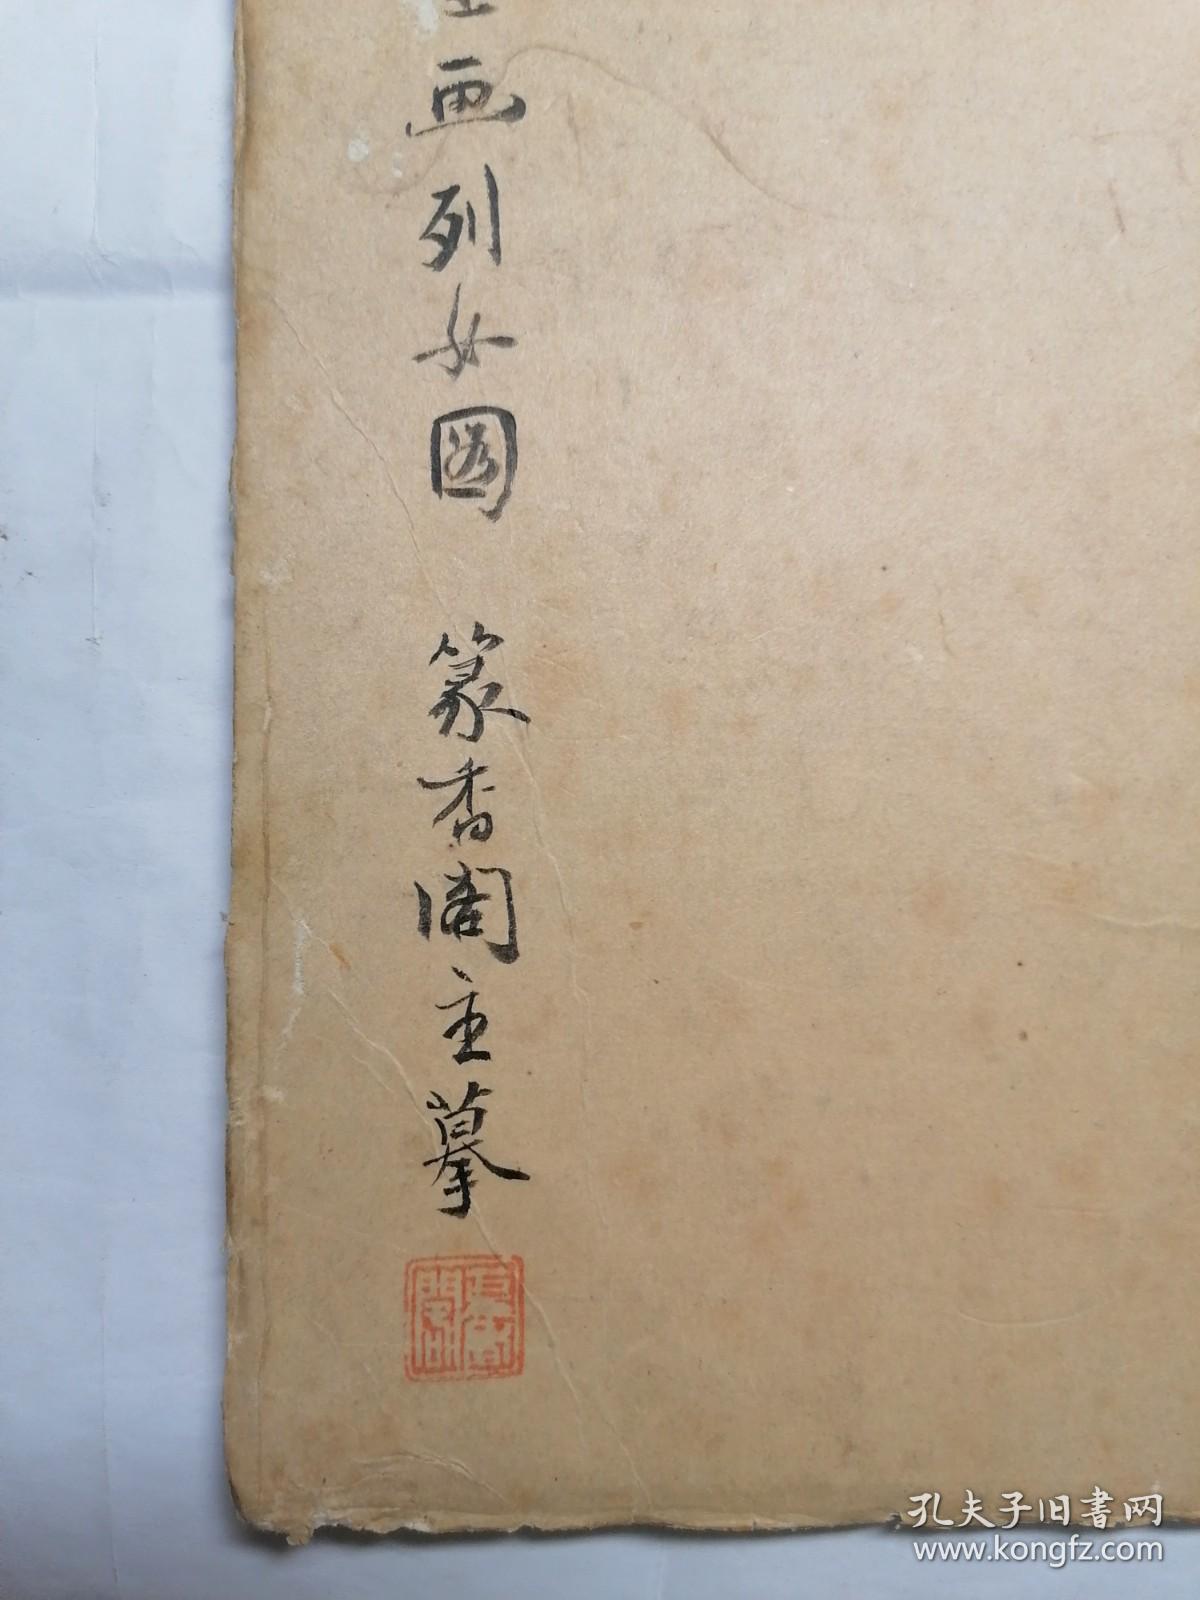 画列女图 篆香阁主摹
孔夫子旧書网
www.kongfz.com